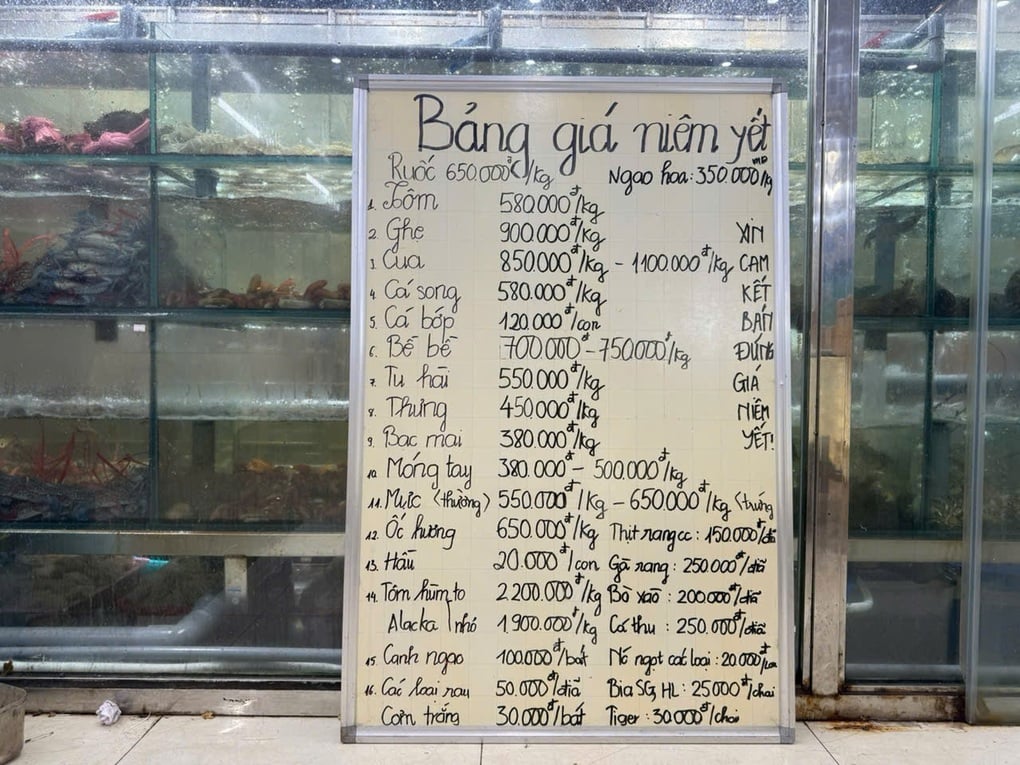 Bảng giá niêm yết
Ruốc 650.000đ/kg Ngao hoa: 350.000/kg
1. Tôm 580.000đ/kg
2. Ghẹ 900.000đ/kg XIN
3. Cua 850.000đ/kg - 1100.000đ/kg CAM
4. Cá song 580.000đ/kg KẾT
5. Cá bớp 120.000đ/con BÁN
6. Bề bề 700.000đ - 750.000đ/kg ĐÚNG
7. Tu hài 550.000đ/kg GIÁ
8. Thưng 450.000đ/kg NIÊM
9. Bạc mai 380.000đ/kg YẾT!
10. Móng tay 380.000đ - 500.000đ/kg
11. Mực (thường) 550.000đ/kg - 650.000đ/kg (trứng
12. Ốc hương 650.000đ/kg Thịt rang cc: 150.000đ/đĩa
13. Hàu 20.000đ/con Gà rang: 250.000đ/đĩa
14. Tôm hùm to 2.200.000đ/kg Bò xào: 200.000đ/đĩa
Alacka nhỏ 1.900.000đ/kg Cá thu: 250.000đ/đĩa
15. Canh ngao 100.000đ/bát Nc ngọt các loại: 20.000đ/lon
16. Các loại rau 50.000đ/đĩa Bia SG, HL: 25000đ/chai
Cơm trắng 30.000đ/bát Tiger: 30.000đ/chai